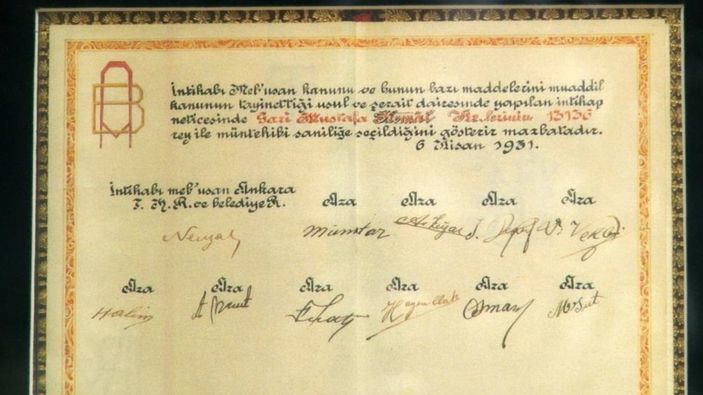 AB
İntihabı Meb'usan kanunu ve bunun bazı maddelerini muaddil
kanunun tayinettiği usul ve şerait dairesinde yapılan intihap
neticesinde Gazi Mustafa Kemâl Hz.lerinin 13136
rey ile müntehibi saniliğe seçildiğini gösterir mazbatadır.
6 Nisan 1931.
İntihabı meb'usan Ankara
T. H. R. ve belediye R. Aza Aza Aza Aza
Mümtaz
Aza Aza Aza Aza Aza Aza
Halim Osman